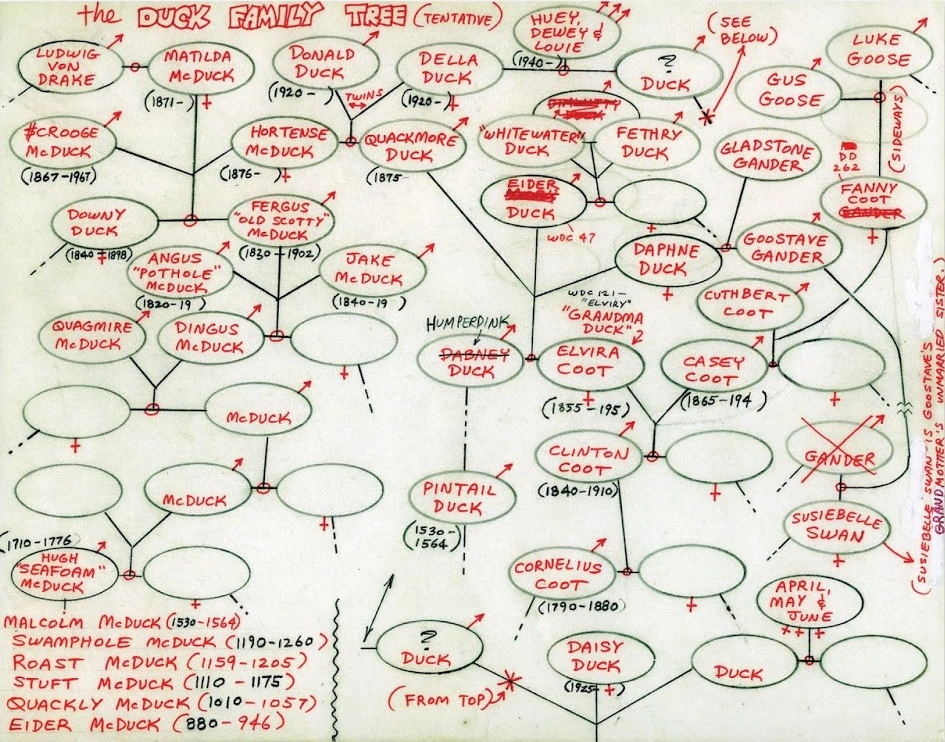 the DUCK FAMILY TREE (TENTATIVE)
HUEY,
DEWEY &
LOUIE
(1940-)
(SEE
BELOW)
LUKE
GOOSE
LUDWIG
VON
DRAKE
MATILDA
McDUCK
(1871-)
DONALD
DUCK
(1920-)
TWINS
DELLA
DUCK
(1920-)
?
DUCK
GUS
GOOSE
(SIDEWAYS)
$CROOGE
McDUCK
(1867-1967)
HORTENSE
McDUCK
(1876-)
QUACKMORE
DUCK
(1875-
DUCK
"WHITEWATER"
DUCK
FETHRY
DUCK
GLADSTONE
GANDER
DD
262
FANNY
COOT
GANDER
DOWNY
DUCK
(1840-1898)
FERGUS
"OLD SCOTTY"
McDUCK
(1830-1902)
EIDER
DUCK
WDC 47
DAPHNE
DUCK
GOOSTAVE
GANDER
ANGUS
"POTHOLE"
McDUCK
(1820-19 )
JAKE
McDUCK
(1840-19 )
WDC 121-
"ELVIRY"
"GRANDMA
DUCK"?
CUTHBERT
COOT
QUAGMIRE
McDUCK
DINGUS
McDUCK
HUMPERDINK
DABNEY
DUCK
ELVIRA
COOT
(1855-195 )
CASEY
COOT
(1865-194 )
McDUCK
CLINTON
COOT
(1840-1910)
GANDER
McDUCK
PINTAIL
DUCK
(1530-
1564)
SUSIEBELLE
SWAN
(SUSIEBELLE SWAN IS GOOSTAVE'S
GRANDMOTHER'S UNMARRIED SISTER.)
(1710-1776)
HUGH
"SEAFOAM"
McDUCK
CORNELIUS
COOT
(1790-1880)
APRIL,
MAY &
JUNE
MALCOLM McDUCK (1530-1564)
SWAMPHOLE McDUCK (1190-1260)
ROAST McDUCK (1159-1205)
STUFT McDUCK (1110-1175)
QUACKLY McDUCK (1010-1057)
EIDER McDUCK (880-946)
?
DUCK
(FROM TOP)
DAISY
DUCK
(1925-)
DUCK